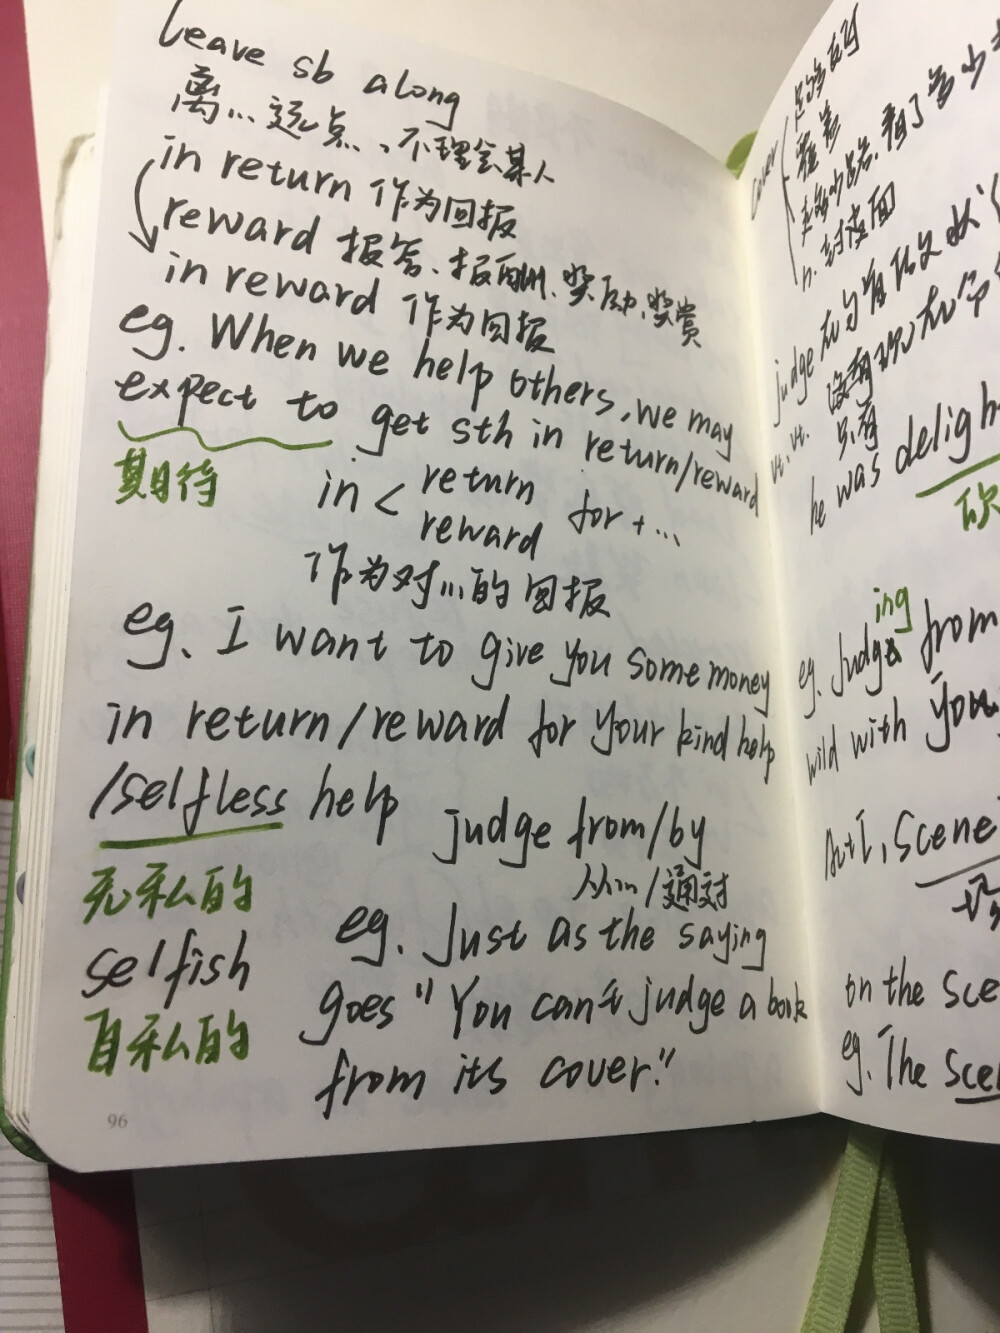 leave sb along
离…远点、不理会某人
in return 作为回报
reward 报答、报酬、奖励、奖赏
in reward 作为回报
eg. When we help others, we may
expect to get sth in return/reward
期待
in < return
reward for + ...
作为对…的回报
eg. I want to give you some money
in return/reward for your kind help
/selfless help
无私的
selfish
自私的
judge from/by
从…/通过
eg. Just as the saying
goes "You can't judge a book
from its cover."
96
cover
足够支付
n. 封皮面
judge
vi, vt.
he was deligh
ing
eg. Judge from
wild with you
Act I, Scene
on the sce
eg. The sce